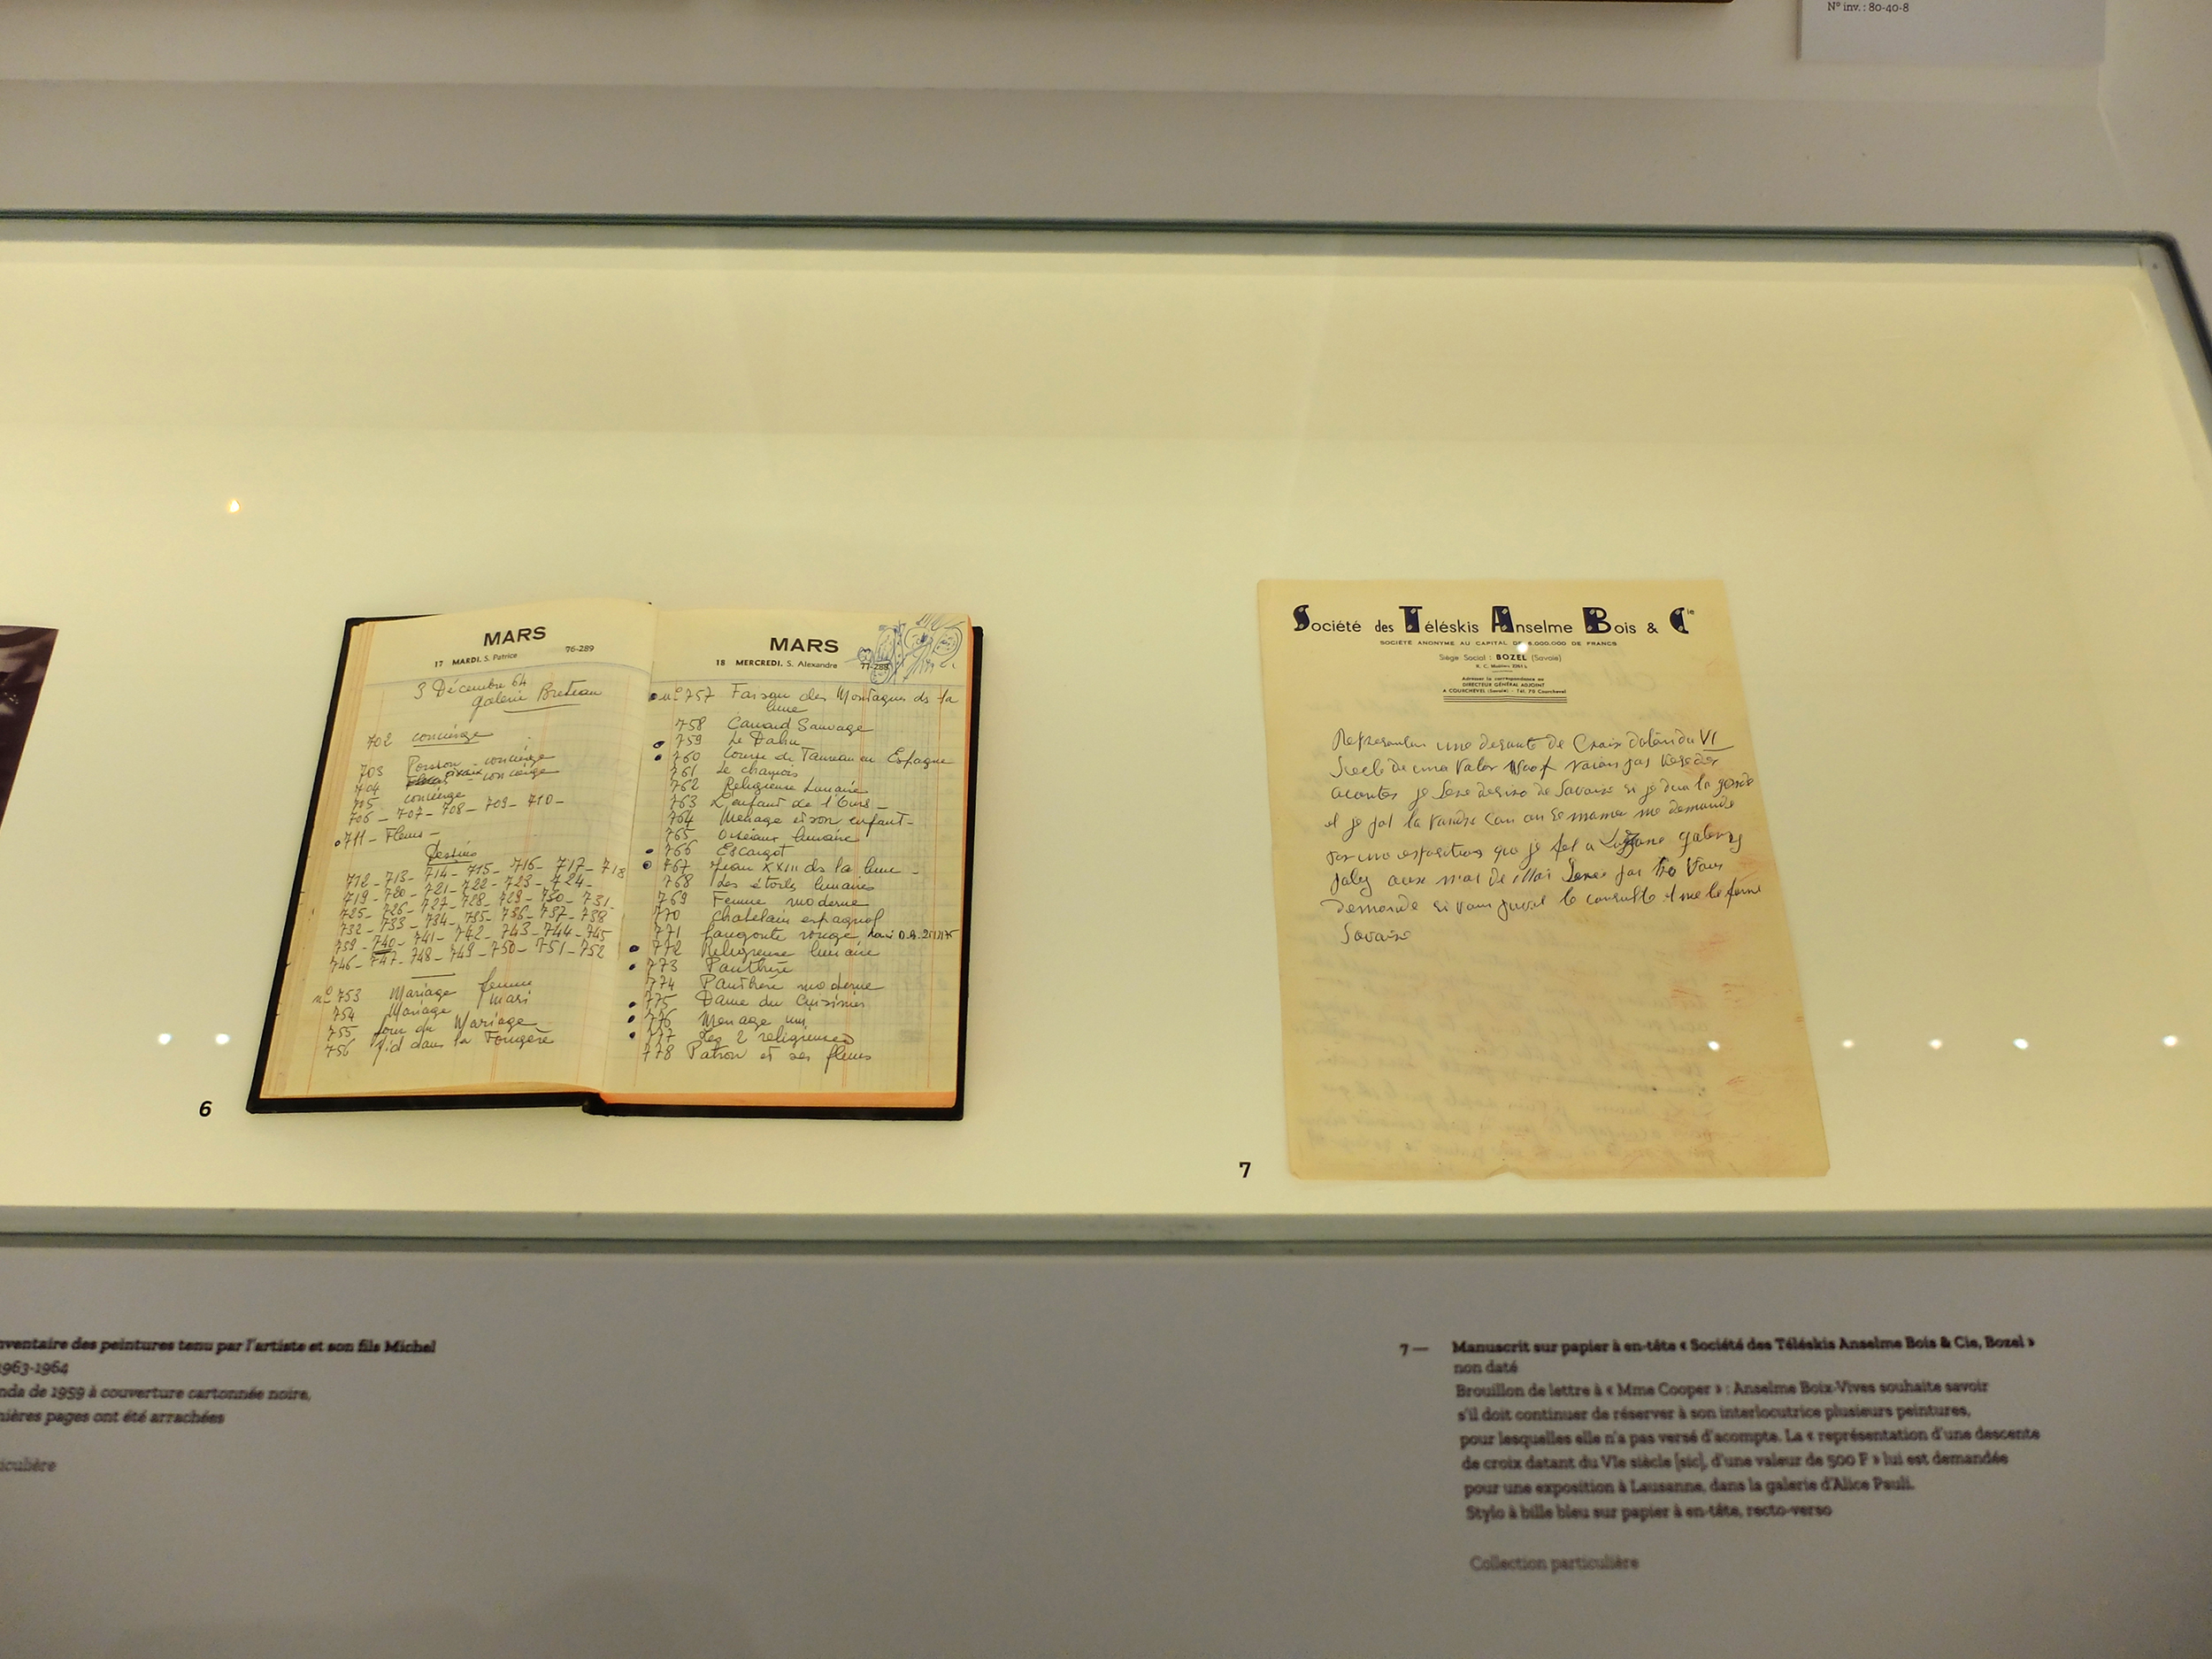 N° inv. : 80-40-8
MARS
17 MARDI. S. Patrice 76-289
3 Décembre 64
galerie Breteau
702 concierge
703 Poisson concierge
704 concierge
705 concierge
706 - 707 - 708 - 709 - 710 -
711 - Fleurs -
Dessins
712 - 713 - 714 - 715 - 716 - 717 - 718
719 - 720 - 721 - 722 - 723 - 724 -
725 - 726 - 727 - 728 - 729 - 730 - 731 -
732 - 733 - 734 - 735 - 736 - 737 - 738
739 - 740 - 741 - 742 - 743 - 744 - 745
746 - 747 - 748 - 749 - 750 - 751 - 752
n° 753 Mariage femme
754 Mariage mari
755 Jour du Mariage
756 Nid dans la Fougère
MARS
18 MERCREDI. S. Alexandre 77-288
n° 757 Faisan des Montagnes de la
lune
758 Canard Sauvage
759 Le Dahu
760 Course de Taureau en Espagne
761 Le chamois
762 Religieuse Lunaire
763 L'enfant de l'Ours -
764 Ménage et son enfant -
765 Oiseaux lunaire
766 Escargot
767 Jean XXIII de la lune -
768 des étoiles lunaires
769 Femme moderne
770 Chatelain espagnol
771 Langouste rouge
772 Religieuse lunaire
773 Panthère
774 Panthère moderne
775 Dame du Cuisinier
776 Menage uni
777 Les 2 religieuses
778 Patron et ses fleurs
6
Société des Téléskis Anselme Bois & Cie
SOCIÉTÉ ANONYME AU CAPITAL DE 6.000.000 DE FRANCS
Siège Social : BOZEL (Savoie)
Adresser la correspondance au
DIRECTEUR GÉNÉRAL ADJOINT
A COURCHEVEL (Savoie) - Tél. 70 Courchevel
une de Croix du VI
de una valor pas
je de Savoir si je la
et je la me demande
por una exposition que je a
de Mai pas
Demande si vous le
Savoire
7
nventaire des peintures tenu par l'artiste et son fils Michel
1963-1964
nda de 1959 à couverture cartonnée noire,
nières pages ont été arrachées
iculière
7 — Manuscrit sur papier à en-tête « Société des Téléskis Anselme Bois & Cie, Bozel »
non daté
Brouillon de lettre à « Mme Cooper » : Anselme Boix-Vives souhaite savoir
s'il doit continuer de réserver à son interlocutrice plusieurs peintures,
pour lesquelles elle n'a pas versé d'acompte. La « représentation d'une descente
de croix datant du VIe siècle [sic], d'une valeur de 500 F » lui est demandée
pour une exposition à Lausanne, dans la galerie d'Alice Pauli.
Stylo à bille bleu sur papier à en-tête, recto-verso
Collection particulière